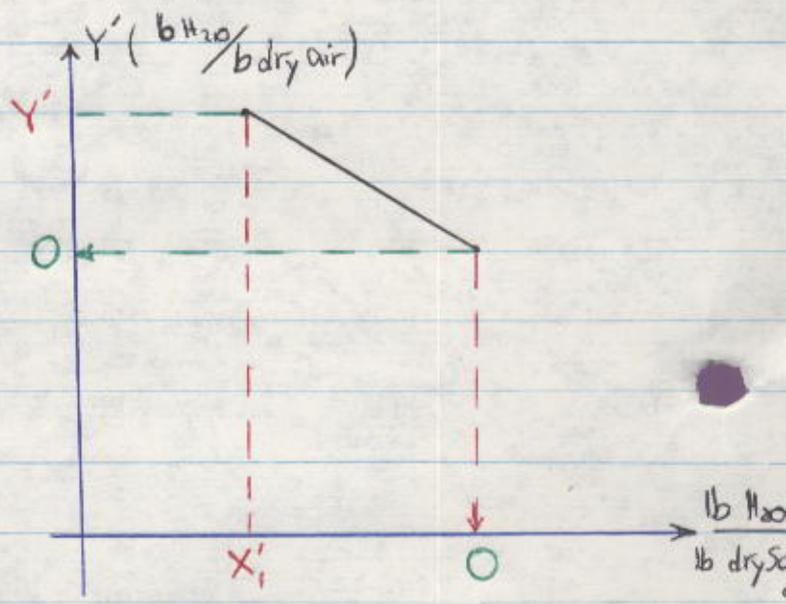 Y' ( lb H2O/lb dry air)
Y'
O
lb H2O
lb dry
X'1
O